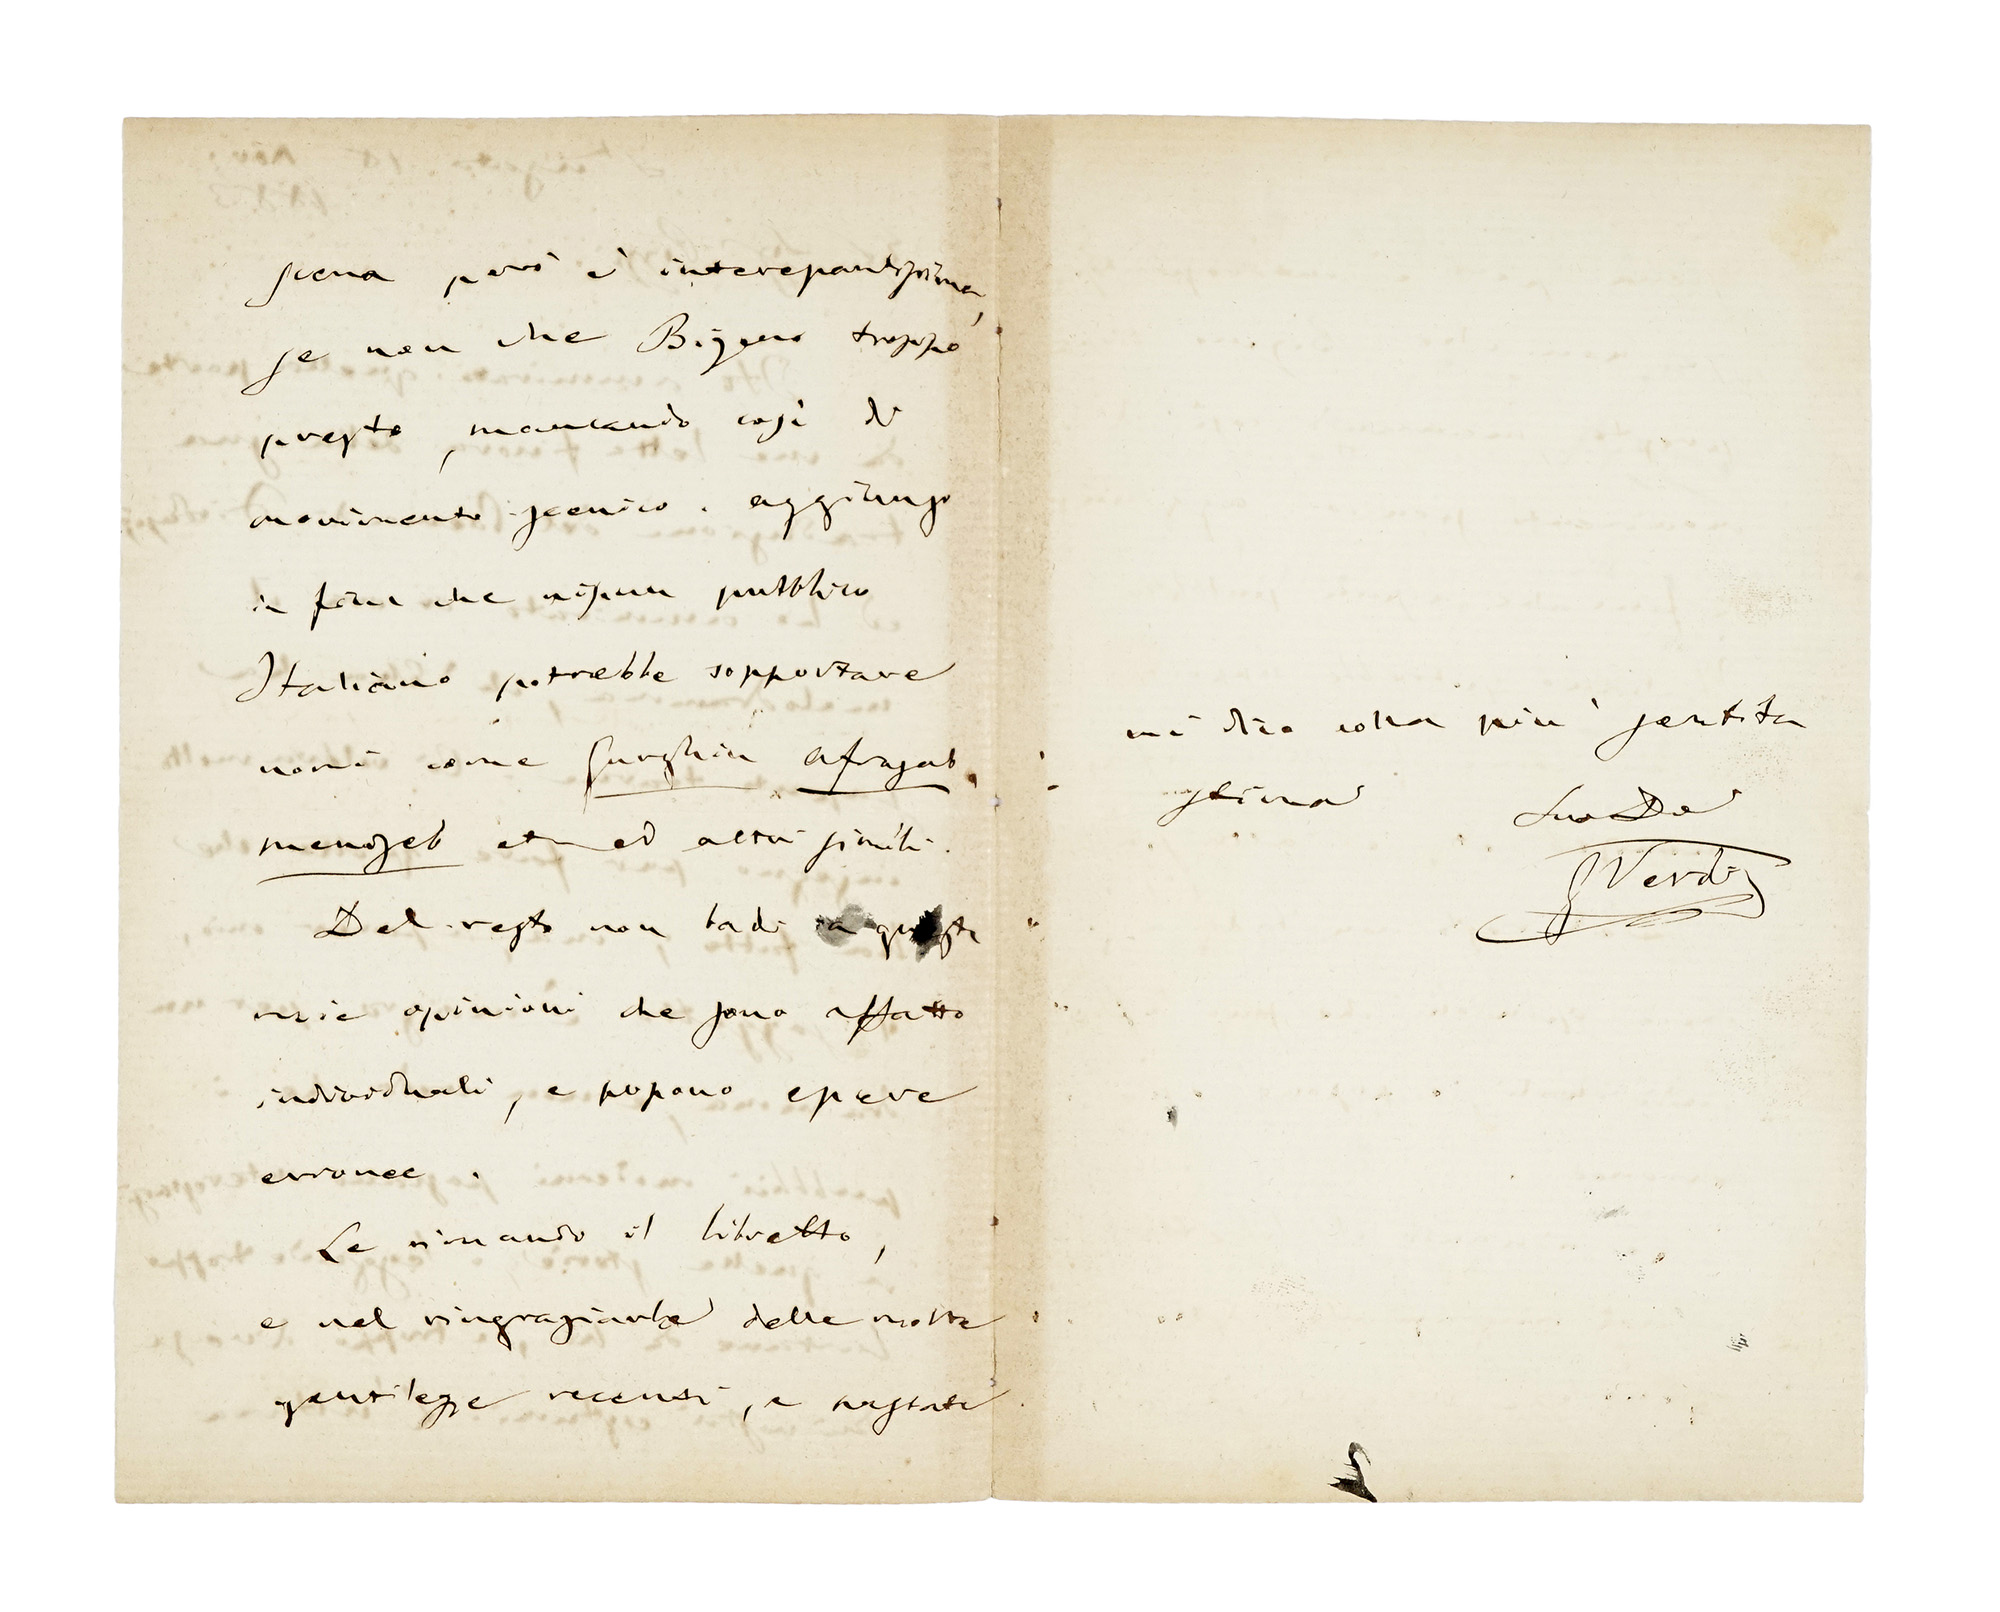 scena però è interessantissima,
se non che troppo
presto, mancando così di
movimento scenico. aggiungo
in fine che nissun pubblico
Italiano potrebbe sopportare
nomi come Gurghin Afrasab
menszeb etc ed altri simili.
Del resto non badi a queste
mie opinioni che sono affatto
individuali, e possono essere
erronee.
Le rimando il libretto,
e nel ringraziarla delle molte
gentilezze recenti, e passate
mi dico colla più sentita
stima Suo Do
G Verdi